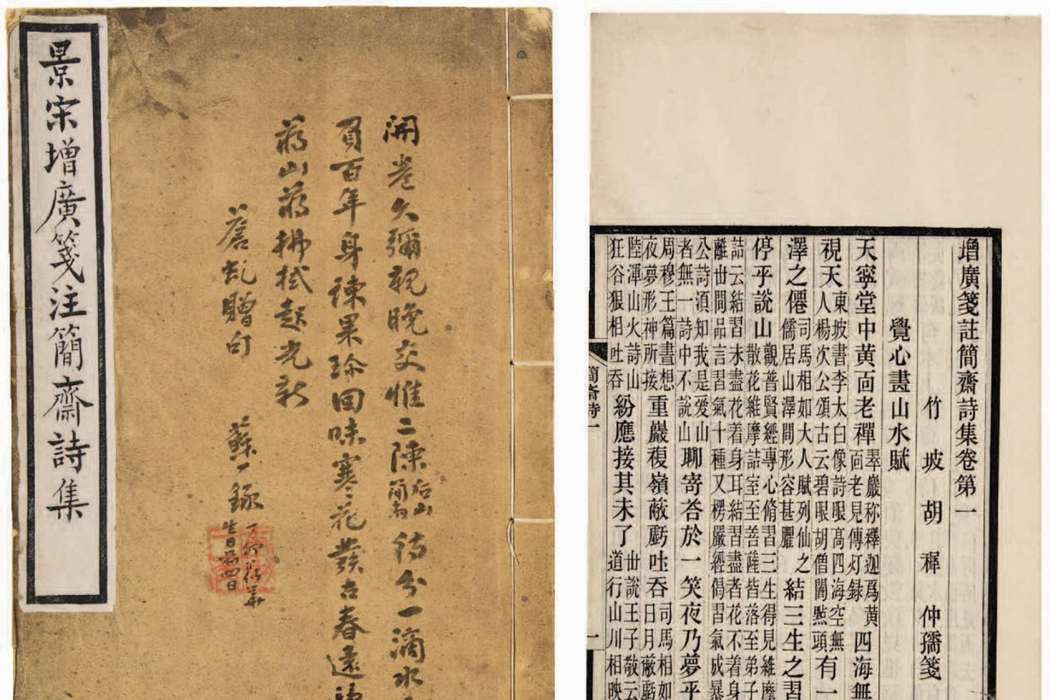 景宋增廣箋注簡齋詩集
開卷久彌親晚交惟二陳后山簡齋待分一滴水
百年身諫果珍回味寒花發古春遠
蔣山蔣拂拭起光新
贈句
蘇一錄
增廣箋註簡齋詩集卷第一
竹坡胡穉仲孺箋
覺心畫山水賦
天寧堂中黃面老禪翠巖称釋迦爲黃面老見傳灯錄四海無
視天人東坡書李太白像詩眼髙四海空無人楊次公頌古云碧眼胡僧開㸃頭有一
澤之僊司馬相如大人賦列仙之儒居山澤間形容甚臞結三生之習
停乎說山觀普賢經專心脩習三生得見維摩詰室至菩薩皆落至弟子
詰云結習未盡花着身耳結習盡者花不着身
離丗間品言習氣十種又楞嚴經偈習氣成暴
公詩湏知我是爱山者無一詩中不說山聊寄荅於一笑夜乃夢乎
周穆王篇晝想夜夢形神所接重巖複嶺蔽虧吐吞司馬相如日月蔽虧
陸渾山火詩山狂谷狠相吐吞紛應接其未了丗說王子敬云道行山川相映
簡斋詩一
一